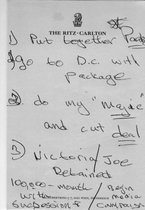 THE RITZ-CARLTON
1) Put together
go to D.C. with
package
2) do my "magic"
and cut deal
3) Victoria/Joe
Retained
100,000- month
Begin
with media
success